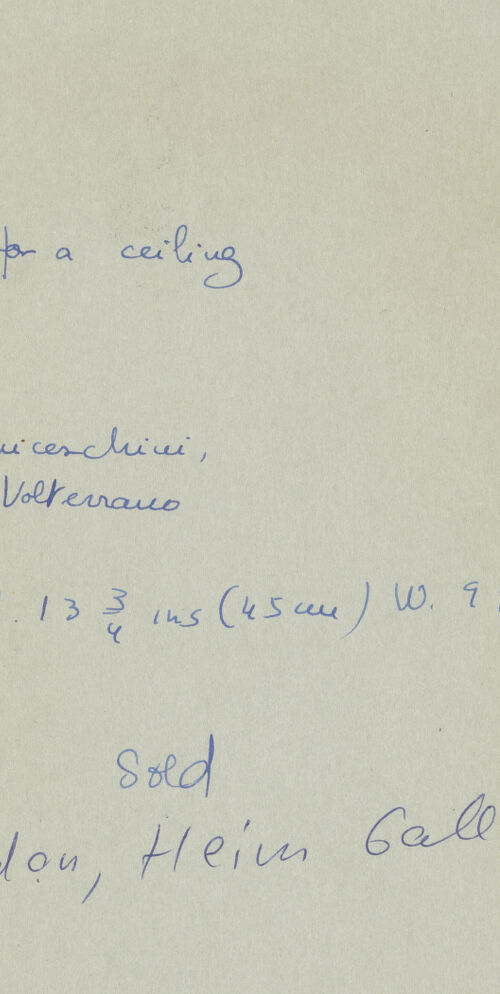 for a ceiling
niceschini,
Volterrano
. 13 3/4 ins (45 cm) W. 9
Sold
don, Heim Gall